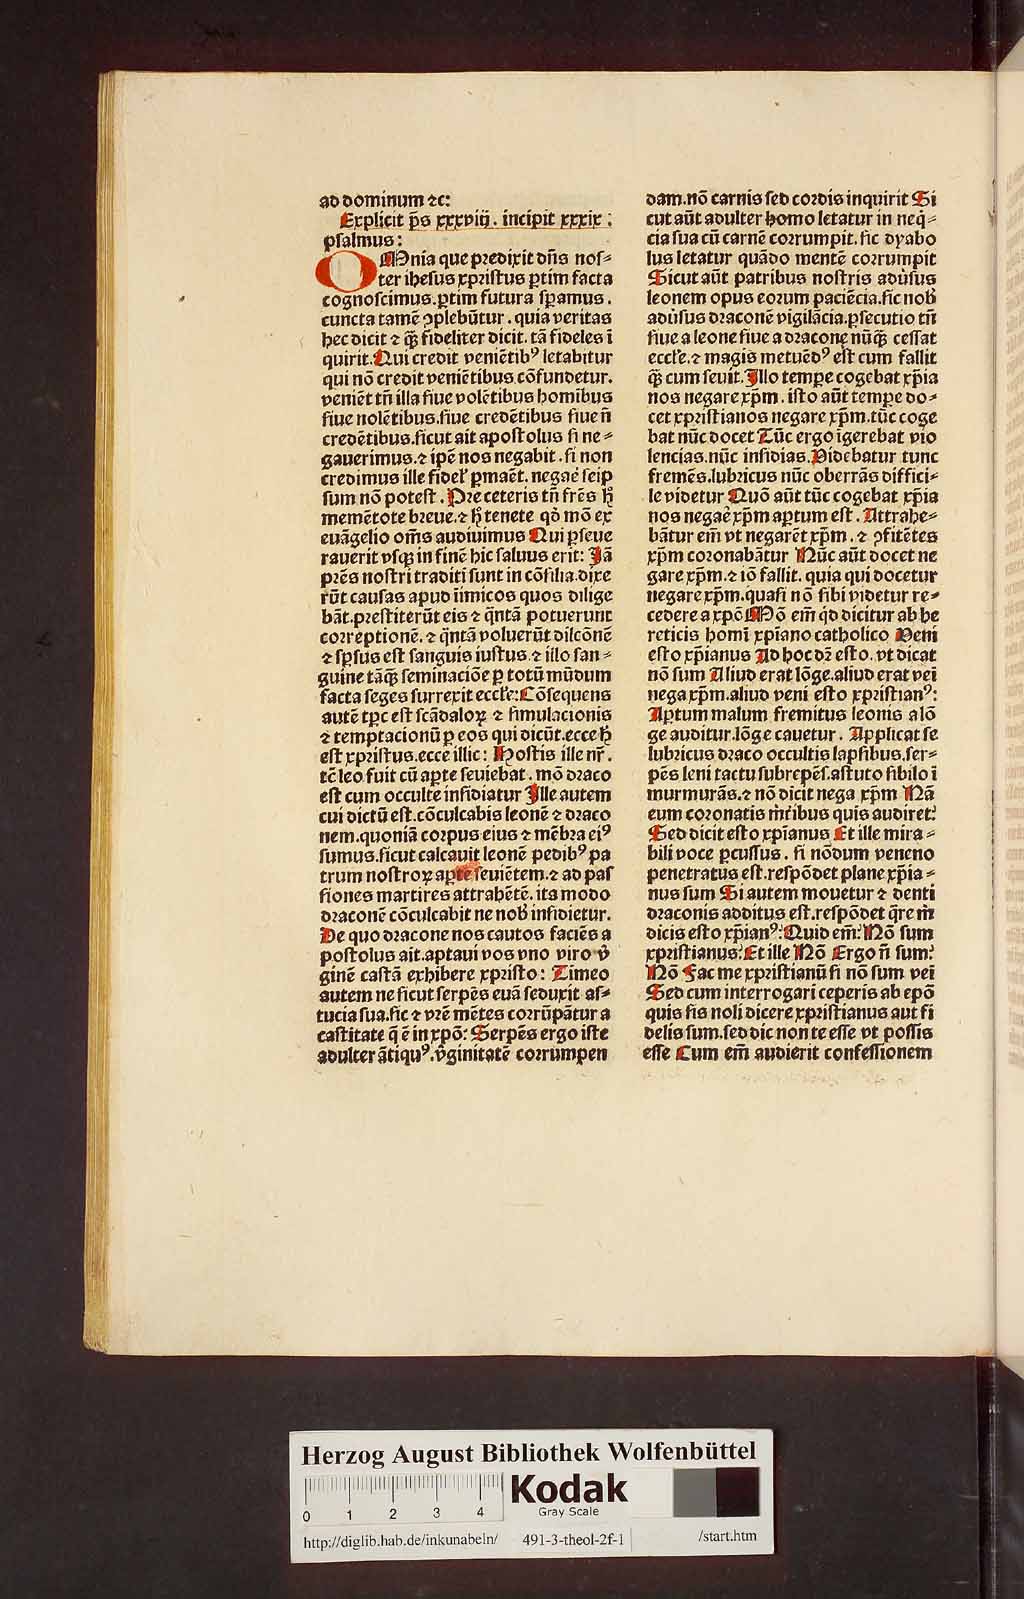 ad dominum ⁊c:
Explicit p̄s xxxviij. incipit xxxix:
psalmus:
OMnia que predixit dn̄s nos⸗
ter ihesus xpristus ꝑtim facta
cognoscimus.ꝑtim futura sꝑamus.
cuncta tamē ꝯplebūtur.quia veritas
hec dicit ⁊ q̄ꝫ fideliter dicit.tā fideles ī
quirit.Qui credit veniētibꝰ letabitur
qui nō credit veniētibus.cōfundetur.
veniēt tn̄ illa siue volētibus hominibus
siue nolētibus.siue credētibus siue n̄
credētibus.sicut ait apostolus si ne⸗
gauerimus.⁊ ip̄e nos negabit.si non
credimus ille fidel' ꝑmaēt.negaē seip
sum nō potest.Pre ceteris tn̄ frēs h̄
memētote breue.⁊ h̄ tenete qd̓ mō ex
euāgelio om̄s audiuimus Qui ꝑseue
rauerit vsq̄ꝫ in finē hic saluus erit: Iā
prēs nostri traditi sunt in cōsilia.dixe
rūt causas apud īimicos quos dilige
bāt.prestiterūt eis ⁊ q̄ntā potuerunt
correptionē.⁊ q̄ntā voluerūt dilcōnē
⁊ sꝑsus est sanguis iustus.⁊ illo san⸗
guine tāq̄ꝫ seminaciōe ꝑ totū mūdum
facta seges surrexit eccl'e: Cōsequens
autē tꝑc est scādaloꝝ ⁊ simulacionis
⁊ temptacionū ꝑ eos qui dicūt.ecce h̄
est xpristus.ecce illic: Hostis ille nr̄.
tē leo fuit cū aꝑte seuiebat.mō draco
est cum occulte insidiatur Ille autem
cui dictū est.cōculcabis leonē ⁊ draco
nem.quoniā corpus eius ⁊ mēbra eiꝰ
sumus.sicut calcauit leonē pedibꝰ pa
trum nostroꝝ aꝑte seuiētem.⁊ ad pas
siones martires attrahētē.ita modo
draconē cōculcabit ne nob̓ insidietur.
De quo dracone nos cautos faciēs a
postolus ait.aptaui vos vno viro v̓
ginē castā exhibere xpristo: Timeo
autem ne sicut serpēs euā seduxit as⸗
tucia sua.sic ⁊ vrē mētes corrūpātur a
castitate q̄ ē in xpō: Serpēs ergo iste
adulter ātiquꝰ.v̓ginitatē corrumpen
dam.nō carnis sed cordis inquirit Si
cut aūt adulter homo letatur in neq̄⸗
cia sua cū carnē corrumpit.sic dyabo
lus letatur quādo mentē corrumpit
Sicut aūt patribus nostris adu̓sus
leonem opus eorum paciēcia.sic nob̓
adu̓sus draconē vigilācia.ꝑsecutio tn̄
siue a leone siue a dracone nūq̄ꝫ cessat
eccl'e.⁊ magis metuēdꝰ est cum fallit
q̄ꝫ cum seuit.Illo tempe cogebat xp̄ia
nos negare xp̄m.isto aūt tempe do⸗
cet xpristianos negare xp̄m.tūc coge
bat nūc docet Tūc ergo īgerebat vio
lencias.nūc insidias.Videbatur tunc
fremēs.lubricus nūc oberrās diffici⸗
le videtur Quō aūt tūc cogebat xp̄ia
nos negaē xp̄m aꝑtum est.Attrahe⸗
bātur em̄ vt negarēt xp̄m.⁊ ꝯfitētes
xp̄m coronabātur Nūc aūt docet ne
gare xp̄m.⁊ iō fallit.quia qui docetur
negare xp̄m.quasi nō sibi videtur re⸗
cedere a xpō Mō em̄ qd̓ dicitur ab he
reticis homī xp̄iano catholico Veni
esto xp̄ianus Ad hoc dꝫ esto.vt dicat
nō sum Aliud erat lōge.aliud erat veī
nega xp̄m.aliud veni esto xpristianꝰ:
Aꝑtum malum fremitus leonis a lō
ge auditur.lōge cauetur.Applicat se
lubricus draco occultis lapsibus.ser⸗
pēs leni tactu subrepēs.astuto sibilo ī
murmurās.⁊ nō dicit nega xp̄m Nā
eum coronatis mr̓ibus quis audiret:
Sed dicit esto xp̄ianus Et ille mira⸗
bili voce ꝑcussus.si nōdum veneno
penetratus est.respōdet plane xp̄ia⸗
nus sum Si autem mouetur ⁊ denti
draconis additus est.respōdet q̄re m̄
dicis esto xp̄ianꝰ: Quid em̄: Nō sum
xpristianus: Et ille Nō Ergo n̄ sum:
Nō Fac me xpristianū si nō sum veī
Sed cum interrogari ceperis ab epō
quis sis noli dicere xpristianus aut fi
delis sum.sed dic non te esse vt possis
esse Cum em̄ audierit confessionem
Herzog August Bibliothek Wolfenbüttel
0 1 2 3 4
Kodak
Gray Scale
http://diglib.hab.de/inkunabeln/ 491-3-theol-2f-1 /start.htm